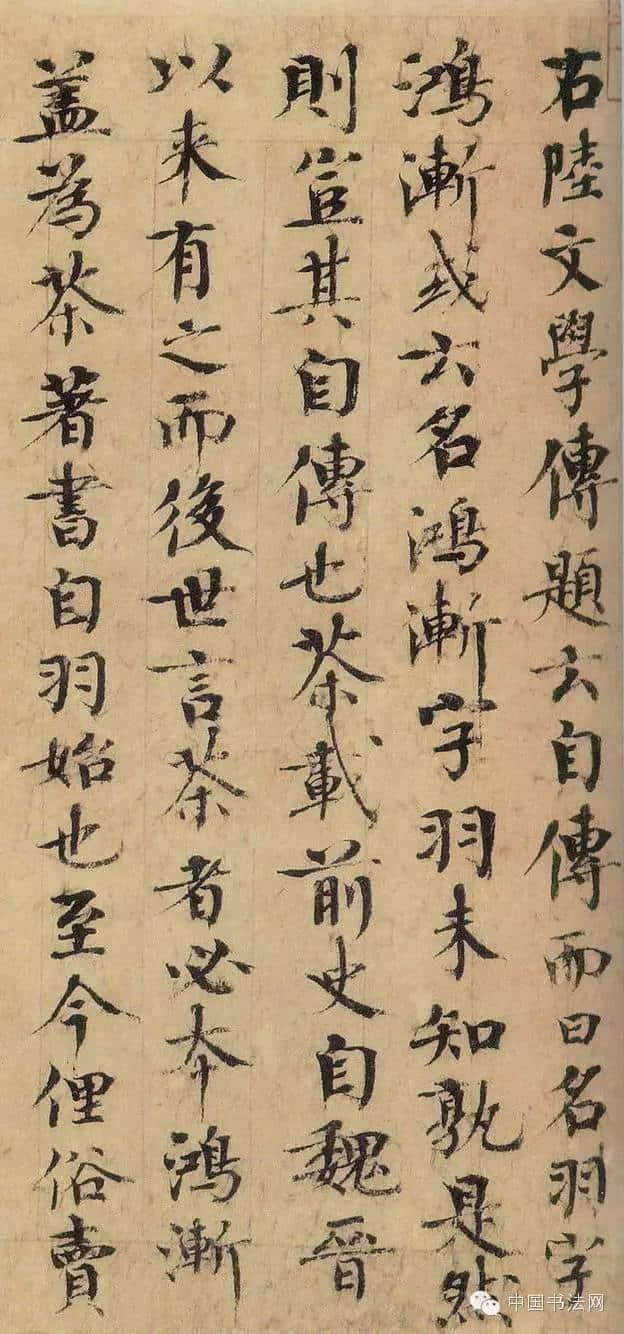 右陸文學傳題云自傳而曰名羽字
鴻漸或云名鴻漸字羽未知孰是然
則豈其自傳也茶載前史自魏晉
以来有之而後世言茶者必本鴻漸
盖為茶著書自羽始也至今俚俗賣
中国书法网